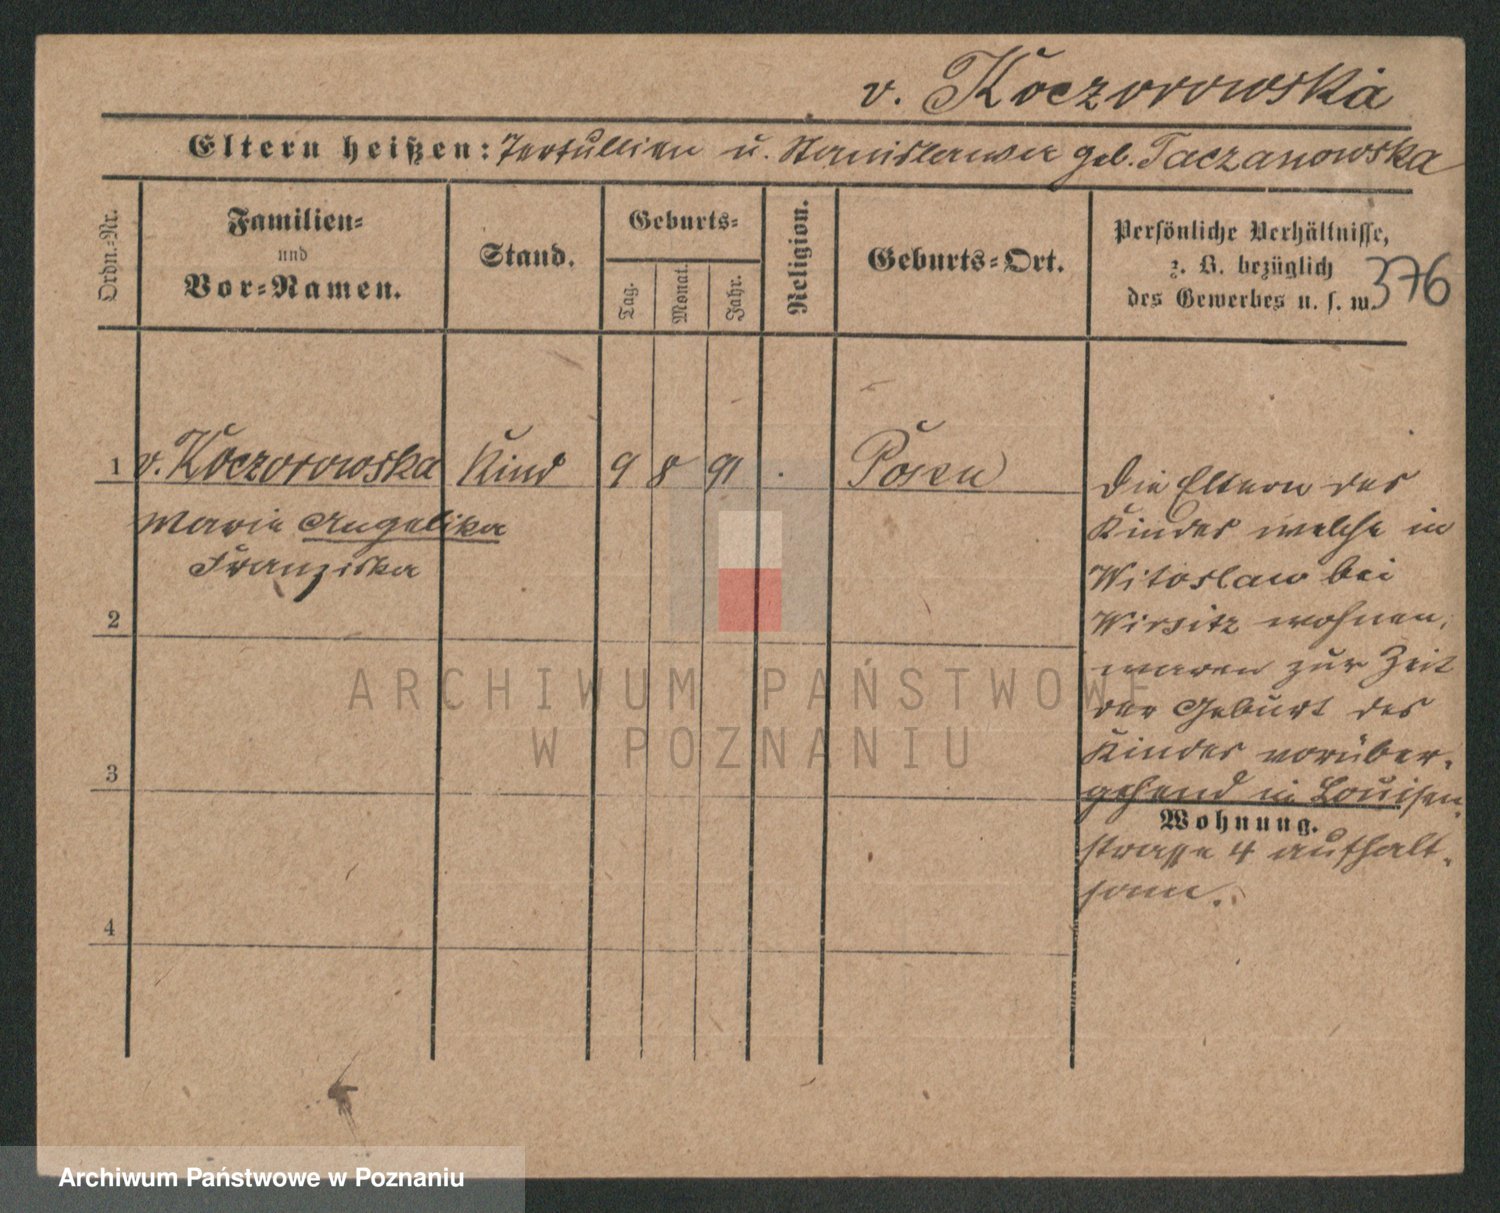 v. Koczorowska
Eltern heißen: Tertullian u. Stanislawa geb. Taczanowska
Ordn.=Nr.
Familien=
und
Vor=Namen.
Stand.
Geburts=
Tag.
Monat.
Jahr.
Religion.
Geburts=Ort.
Persönliche Verhältnisse,
z. B. bezüglich
des Gewerbes u. s. w.
376
1 v. Koczorowska Kind 9 8 91 . Posen
Marie Angelika
Franziska
2
3
4
Die Eltern des
Kindes welche in
Witoslaw bei
Wirsitz wohnen,
waren zur Zeit
der Geburt des
Kindes vorüber-
gehend in Louisen-
Wohnung.
strasse 4 aufhalt-
sam.
ARCHIWUM PAŃSTWOWE
W POZNANIU
Archiwum Państwowe w Poznaniu